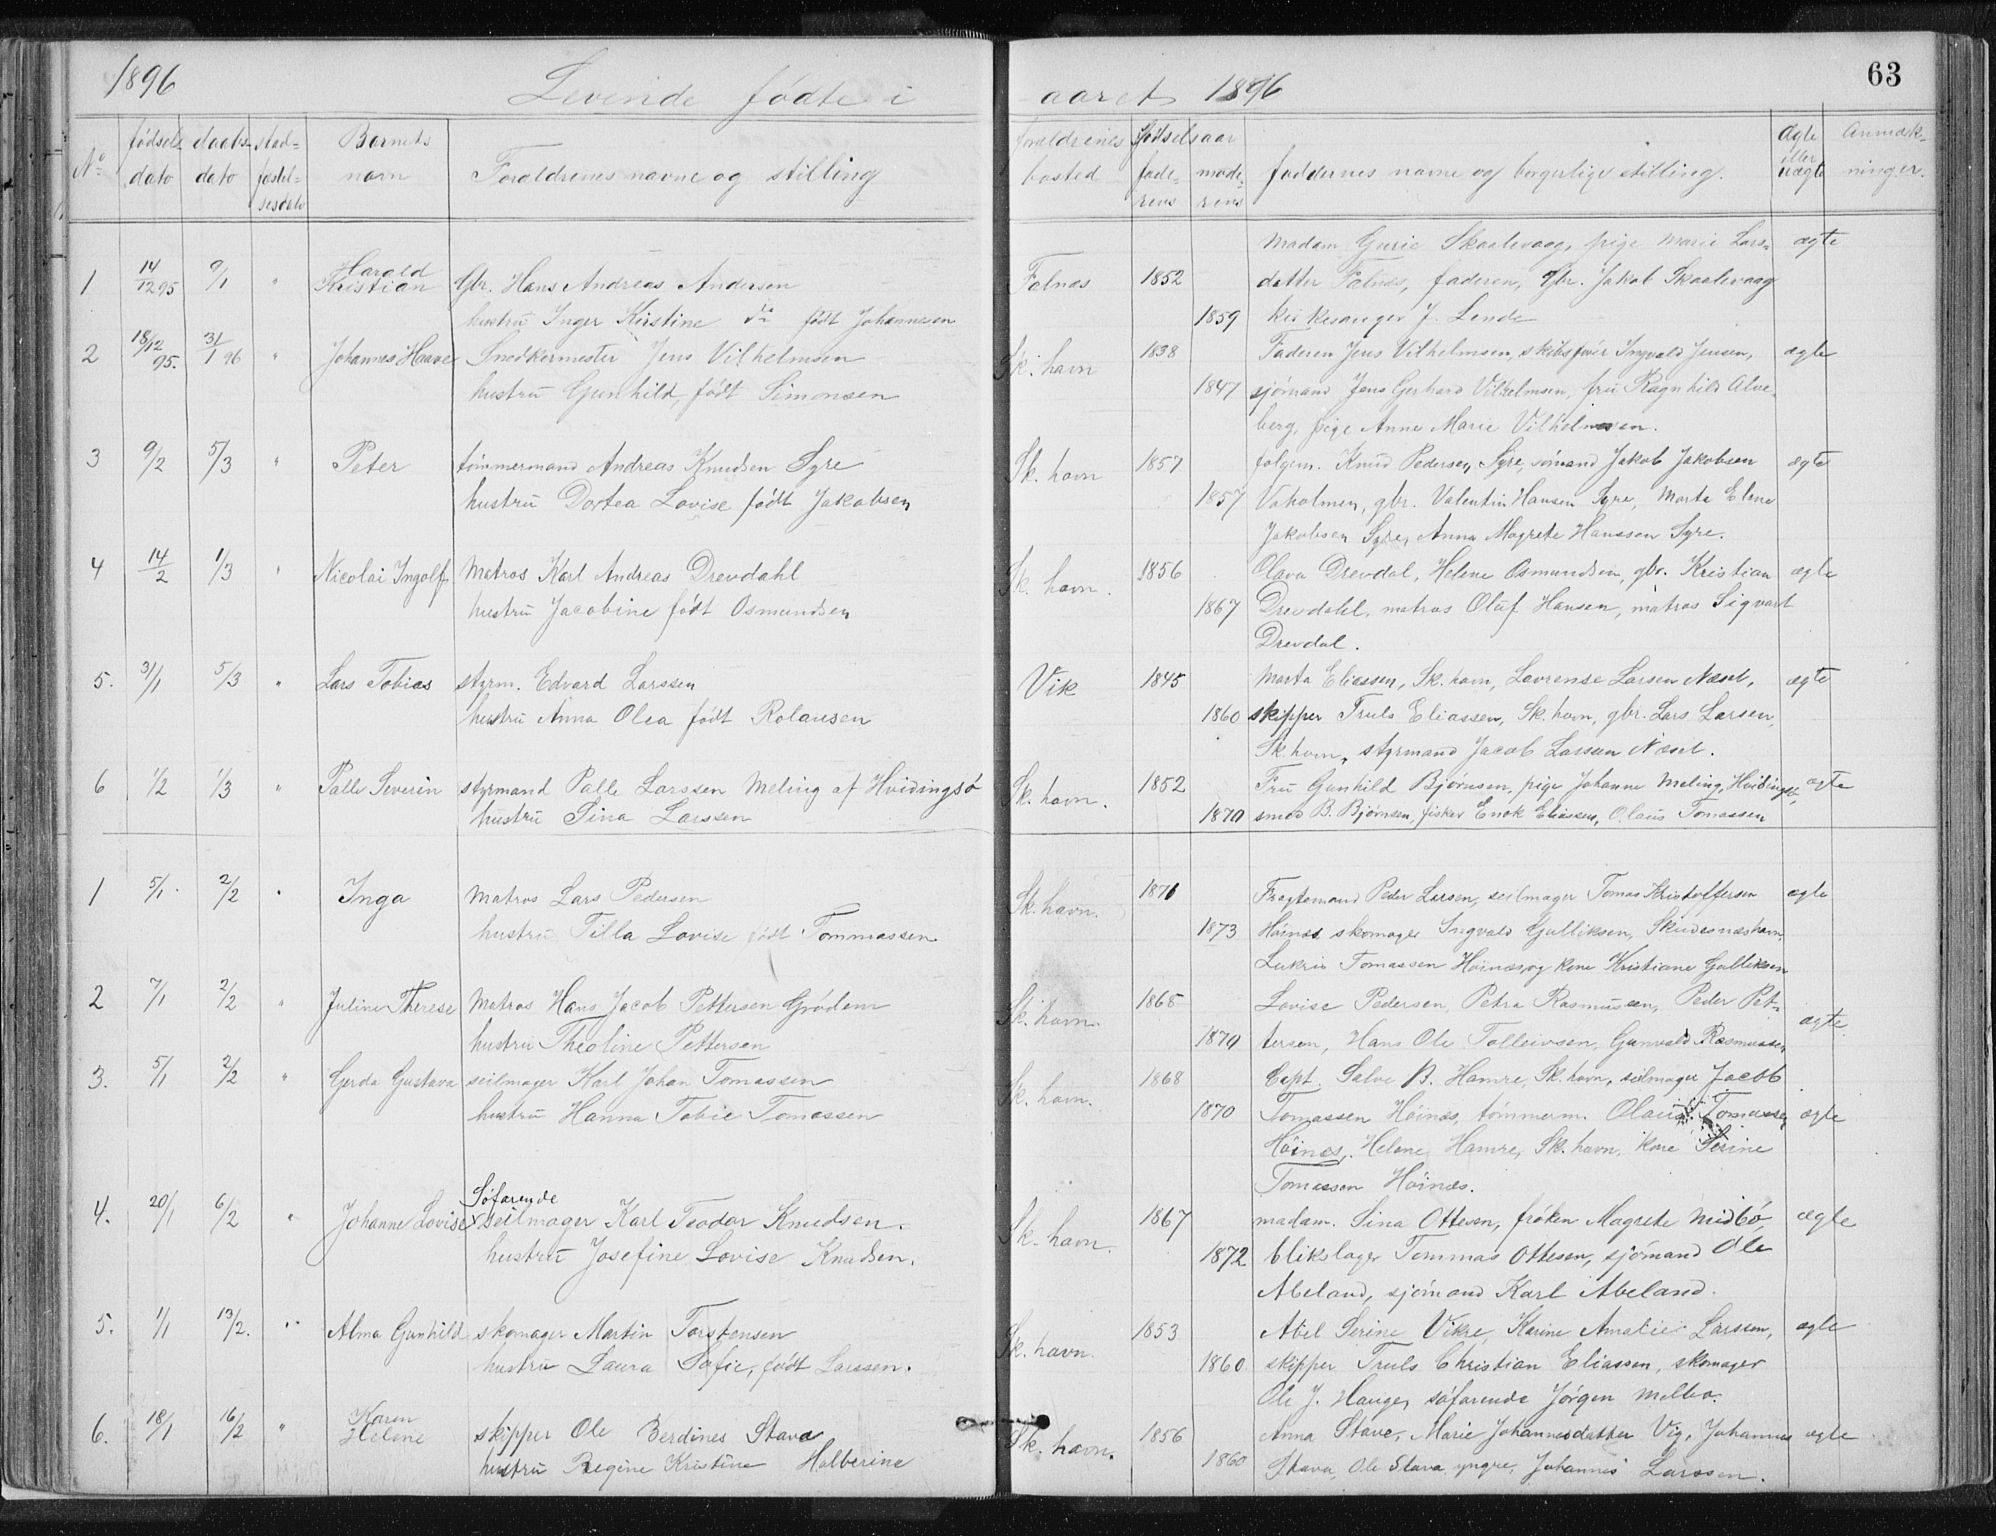 1896 Levende fødte i aaret 1896 63
No fødsels dato daabs dato stad-fæstel-sesdato Barnets navn Forældrenes navne og stilling forældrenes bosted fødselsaar faderens moderens faddernes navne og borgerlige stilling. Ægte eller uægte Anmærkninger.
Madam Gurie Skaalevaag, pige Marie Lars- ægte
1 14/12 95 9/1 " Harald Kristian Gbr. Hans Andreas Andersen Falnæs 1852 datter Falnæs, faderen, gbr. Jakob Skaalevaag
hustru Inger Kirstine do født Johannesen 1859 kirkesanger J. Lende
2 18/12 95. 31/1 96 " Johannes Haave Snedkermester Jens Vilhelmsen Sk. havn 1838 Faderen Jens Vilhelmsen, skibsfører Ingvald Jensen, ægte
hustru Gunhild, født Simonsen 1847 sjömand Jens Gerhard Vilhelmsen, fru Ragnhild Alve-
berg, pige Anne Marie Vilhelmsen.
3 9/2 5/3 " Peter tömmermand Andreas Knudsen Syre Sk. havn 1857 folgem. Knud Pedersen Syre, sömand Jakob Jakobsen ægte
hustru Dortea Lovise født Jakobsen 1857 Vaholmen, gbr. Valentin Hansen Syre, Marta Elene
Jakobsen Syre, Anna Magrete Hanssen Syre.
4 14/2 1/3 " Nicolai Ingolf Matros Karl Andreas Drevdahl Sk. havn. 1856 Olava Drevdal, Helene Osmundsen, gbr. Kristian ægte
hustru Jacobine født Osmundsen 1867 Drevdahl, matros Oluf Hansen, matros Sigvart
Drevdal.
5. 31/1 5/3 " Lars Tobias styrm. Edvard Larssen Vik 1845 Marta Eliassen, Sk. havn, Lavrense Larsen Næset, ægte
hustru Anna Olea født Rolausen 1860 skipper Truls Eliassen, Sk. havn, gbr. Lars Larsen,
Sk. havn, styrmand Jacob Larssen Næset.
6 1/2 1/3 " Palle Severin styrmand Palle Larssen Meling af Hvidingsö Sk. havn. 1852 Fru Gunhild Bjørnsen, pige Johanne Meling, Hvidingsö, ægte
hustru Sina Larssen 1870 smed B. Bjørnsen, fisker Enok Eliassen, Olaus Tomassen
1 5/1 2/2 " Inga Matros Lars Pedersen Sk. havn. 1871 Fragtemand Peder Larsen, seilmager Tomas Kristoffersen ægte
hustru Tilla Lovise født Tommassen 1873 Höinæs skomager Ingvald Gulliksen, Skudesnæshavn,
Lukris Tomassen Höinæs, og kone Kristiane Gulliksen
2 7/1 2/2 " Juline Therese Matros Hans Jacob Pettersen Grödem Sk. havn. 1865 Lovise Pedersen, Petra Rasmussen, Peder Pet-
hustru Theoline Pettersen 1870 tersen, Hans Ole Tolleivsen, Gunvald Rasmussen ægte
3. 5/1 2/2 " Gerda Gustava seilmager Karl Johan Tomassen Sk. havn. 1868 Capt. Salve B. Hamre, Sk. havn, seilmager Jacob
hustru Hanna Tobie Tomassen 1870 Tomassen Höinæs, tömmerm. Olaus Tomassen ægte
Höinæs, Helene Hamre, Sk. havn, kone Serine
Tomassen Höinæs.
4. 20/1 6/2 " Johanne Lovise Söfarende seilmager Karl Teodor Knudsen. Sk. havn. 1867 madam. Sina Ottesen, fröken Magrete Midbö ægte
hustru Josefine Lovise Knudsen. 1872 blikslager Tommas Ottesen, sjömand Ole
Abeland, sjömand Karl Abeland.
5. 1/1 13/2. " Alma Gunhild skomager Martin Torstensen Sk. havn. 1853 Abel Serine Vikre, Karine Amalie Larssen, ægte
hustru Laura Sofie, født Larssen. 1860 skipper Truls Christian Eliassen, skomager
Ole J. Hauge, söfarende Jörgen Melbo.
6. 18/1 16/2 " Karen Helene skipper Ole Berdines Stava Sk. havn. 1856 Anna Stave, Marie Johannesdatter Vig, Johannes ægte
hustru Regine Kristine Halberine 1860 Stava, Ole Stava yngre, Johannes Larssen.